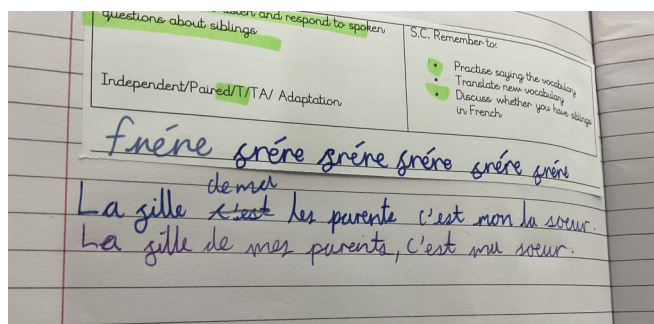 listen and respond to spoken
questions about siblings
Independent/Paired/T/TA/ Adaptation
S.C. Remember to:
• Practise saying the vocabulary
• Translate new vocabulary
• Discuss whether you have siblings
in French
frére frére frére frére frére frére
La fille c'est les parents c'est mon la soeur.
La fille de mes parents, c'est ma soeur.